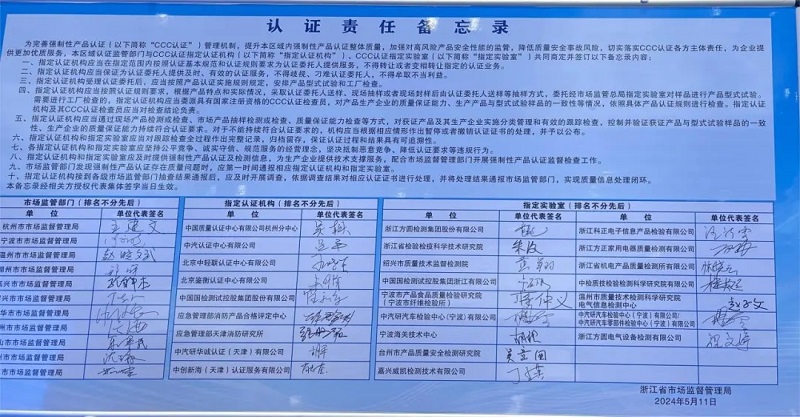 认证责任备忘录
为完善强制性产品认证（以下简称“CCC认证”）管理机制，提升本区域内强制性产品认证整体质量，加强对高风险产品安全性能的监管，降低质量安全事故风险，切实落实CCC认证各方主体责任，为企业提
供更加优质服务，本区域认证监管部门与CCC认证指定认证机构（以下简称“指定认证机构”）、CCC认证指定实验室（以下简称“指定实验室”）共同商定并签订以下备忘录内容：
一、指定认证机构应当在指定范围内按照认证基本规范和认证规则要求为认证委托人提供服务，不得转让或者变相转让指定的认证业务。
二、指定认证机构应当保证为认证委托人提供及时、有效的认证服务，不得歧视、刁难认证委托人，不得牟取不当利益。
三、指定认证机构受理认证委托后，应当按照产品认证实施规则规定，安排产品型式试验和工厂检查。
四、指定认证机构应当按照认证规则要求，根据产品特点和实际情况，采取认证委托人送样、现场抽样或者现场封样后由认证委托人送样等抽样方式，委托经市场监管总局指定实验室对样品进行产品型式试验。
需要进行工厂检查的，指定认证机构应当委派具有国家注册资格的CCC认证检查员，对产品生产企业的质量保证能力、生产产品与型式试验样品的一致性等情况，依照具体产品认证规则进行检查。指定认证
机构及其CCC认证检查员应当对检查结论负责。
五、指定认证机构应当通过现场产品检测或检查、市场产品抽样检测或检查、质量保证能力检查等方式，对获证产品及其生产企业实施分类管理和有效的跟踪检查，控制并验证获证产品与型式试验样品的一致
性、生产企业的质量保证能力持续符合认证要求。对于不能持续符合认证要求的，机构应当根据相应情形作出暂停或者撤销认证证书的处理，并予以公布。
六、指定认证机构应当对跟踪检查全过程作出完整记录，归档留存，保证认证过程和结果具有可追溯性。
七、各指定认证机构和指定实验室应坚持公平竞争、诚实守信、规范服务的经营理念，坚决抵制恶意竞争、降低认证要求等违规行为。
八、指定认证机构和指定实验室应及时提供强制性产品认证及检测信息，为生产企业提供技术支撑服务，配合市场监管部门开展强制性产品认证监督检查工作。
九、市场监管部门发现强制性产品认证存在质量问题时，应第一时间通报相应指定认证机构和指定实验室。
十、指定认证机构接到各级市场监管部门抽查结果通报后，应及时开展调查，依据调查结果对相应认证证书进行处理，并将处理结果通报市场监管部门，实现质量信息处理闭环。
本备忘录经相关方授权代表集体签字当日生效。
市场监管部门（排名不分先后） 指定认证机构（排名不分先后） 指定实验室（排名不分先后）
单位 单位代表签名 单位 单位代表签名 单位 单位代表签名 单位 单位代表签名
杭州市市场监督管理局 中国质量认证中心有限公司杭州分中心 浙江方圆检测集团股份有限公司 浙江科正电子信息产品检验有限公司
宁波市市场监督管理局 中汽认证中心有限公司 浙江省检验检疫科学技术研究院 浙江方正家用电器质量检测有限公司
温州市市场监督管理局 北京中轻联认证中心有限公司 绍兴市质量技术监督检测院 浙江省机电产品质量检测所有限公司
州市市场监督管理局 北京鉴衡认证中心有限公司 中国国检测试控股集团浙江有限公司 中检质技检验检测科学研究院有限公司
兴市市场监督管理局 中国国检测试控股集团股份有限公司 宁波市产品食品质量检验研究院（宁波市纤维检验所） 温州市质量技术检测科学研究院电气信息检测中心
华市市场监督管理局 应急管理部消防产品合格评定中心 中汽研汽车检验中心（宁波）有限公司 中汽研汽车检验中心（宁波）有限公司/中汽研汽车零部件检验中心（宁波）有限公司
市市场监督管理局 应急管理部天津消防研究所 宁波海关技术中心 浙江方圆电气设备检测有限公司
山市市场监督管理局 中汽研华诚认证（天津）有限公司 台州市产品质量安全检测研究院
市市场监督管理局 中创新海（天津）认证服务有限公司 嘉兴威凯检测技术有限公司
浙江省市场监督管理局
2024年5月11日